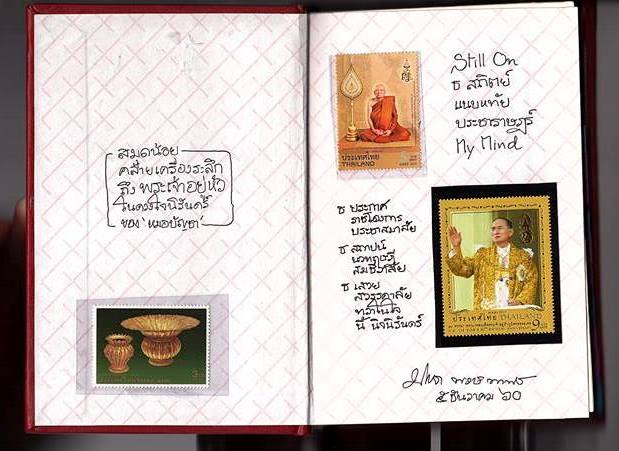 สมุดน้อย
คล้ายเครื่องระลึก
ถึง พระเจ้าอยู่หัว
ในดวงใจนิรันดร์
ของ 'หมอบัญชา'
Still On
ธ สถิตย์
แนบหทัย
ประชาราษฎร์
My Mind
ประเทศไทย
THAILAND
ธ ประกาศ
ราชโครงการ
ประชาสมาสัย
ธ สถาปน์
สมชีพาลัย
ธ เสวย
สวรรคาลัย
นี้ นิจนิรันดร์
ประเทศไทย THAILAND
9
๕ ธันวาคม ๖๐